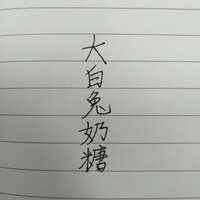 大白兔奶糖